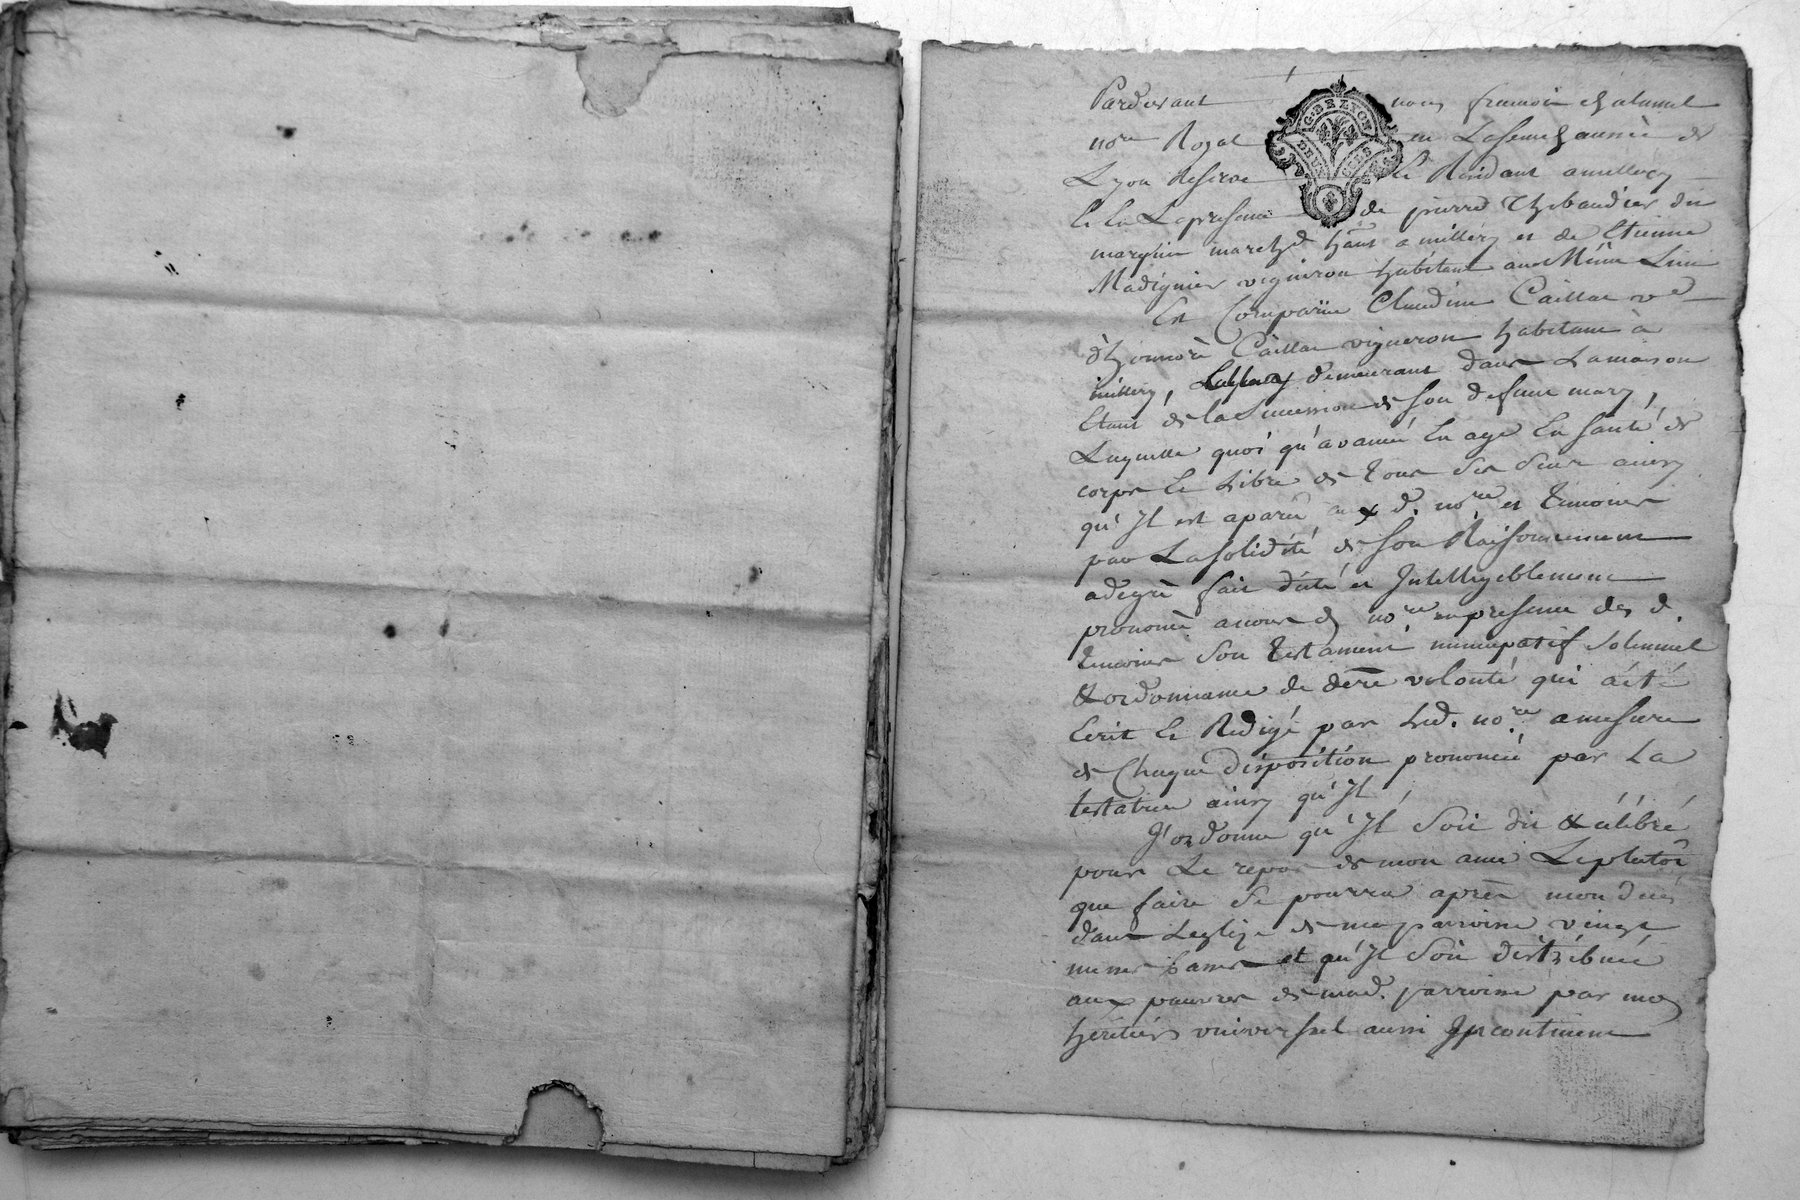 G. DE LYON
DEUX
Pardevant nous francois chalumel
no.re Royal en La senechaussée de
Lyon Reservé Residant a millery
Et En La presence de pierre Thibaudier du
march.d hãnt a millery et de Etienne
Madignier vigneron habitant aud Même Lieu
Est Comparüe Claudine Caillat v.e
d'honnoré Caillat vigneron habitant à
millery, demeurant dans La maison
Etant de la Succession de son defunt mary,
Laquelle quoi qu'avancée En age En santé de
corps Et Libre de tous ses sens ainsy
qu'Il est aparu aux d. no.re et temoins
par La solidité de son Raisonnement
a degré fait dicté et Intelligeblement
prononcé a nous d no.re en presence des d.
temoins Son testament nuncupatif solemnel
& ordonnance de dere volonté qui a été
Ecrit Et Redigé par Led. no.re a mesure
de Chaque disposition prononcée par La
testatrice ainsy qu'Il
J'ordonne qu'Il Soit dit & célébré
pour Le repos de mon ame Le plutôt
que faire Se pourra après mon decès
dans L'eglize de ma parroisse vingt
messes basses et qu'Il Soit distribué
aux pauvres de mad. parroisse par mon
héritier universel aussi Incontinent